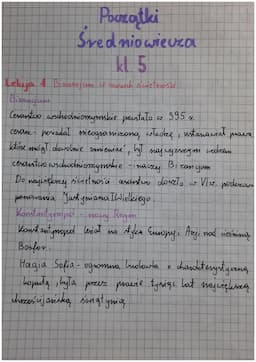 Początki
Średniowiecza
kl 5
Lekcja 1 Bizancjum w czasach świetności
Bizancjum
Cesarstwo wschodniorzymskie powstało w 395 r.
cesarz - posiadał nieograniczoną władzę, ustanawiał prawa,
które mógł dowolnie zmieniać, był najwyższym wodzem
cesarstwo wschodniorzymskie - inaczej Bizancjum
Do największej świetności cesarstwo doszło w VI w. podczas
panowania Justyniana I Wielkiego.
Konstantynopol - nowy Rzym
Konstantynopol leżał na styku Europy i Azji nad cieśniną
Bosfor.
Hagia Sofia - ogromna budowla o charakterystycznej
kopule, była przez prawie tysiąc lat największą
chrześcijańską świątynią